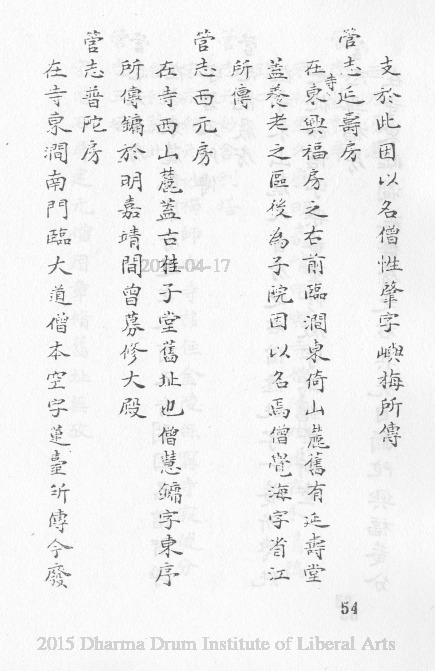 支於此因以名僧性肇字嶼梅所傳
管志延壽房
在寺東興福房之右前臨澗東倚山麓舊有延壽堂
蓋養老之區後為子院因以名焉僧覺海字省江
所傳
管志西元房
在寺西山麓蓋古桂子堂舊址也僧慧鏞字東序
所傳鏞於明嘉靖間曾募修大殿
管志普陀房
在寺東澗南門臨大道僧本空字蓮臺所傳今廢
54
2015-04-17
2015 Dharma Drum Institute of Liberal Arts